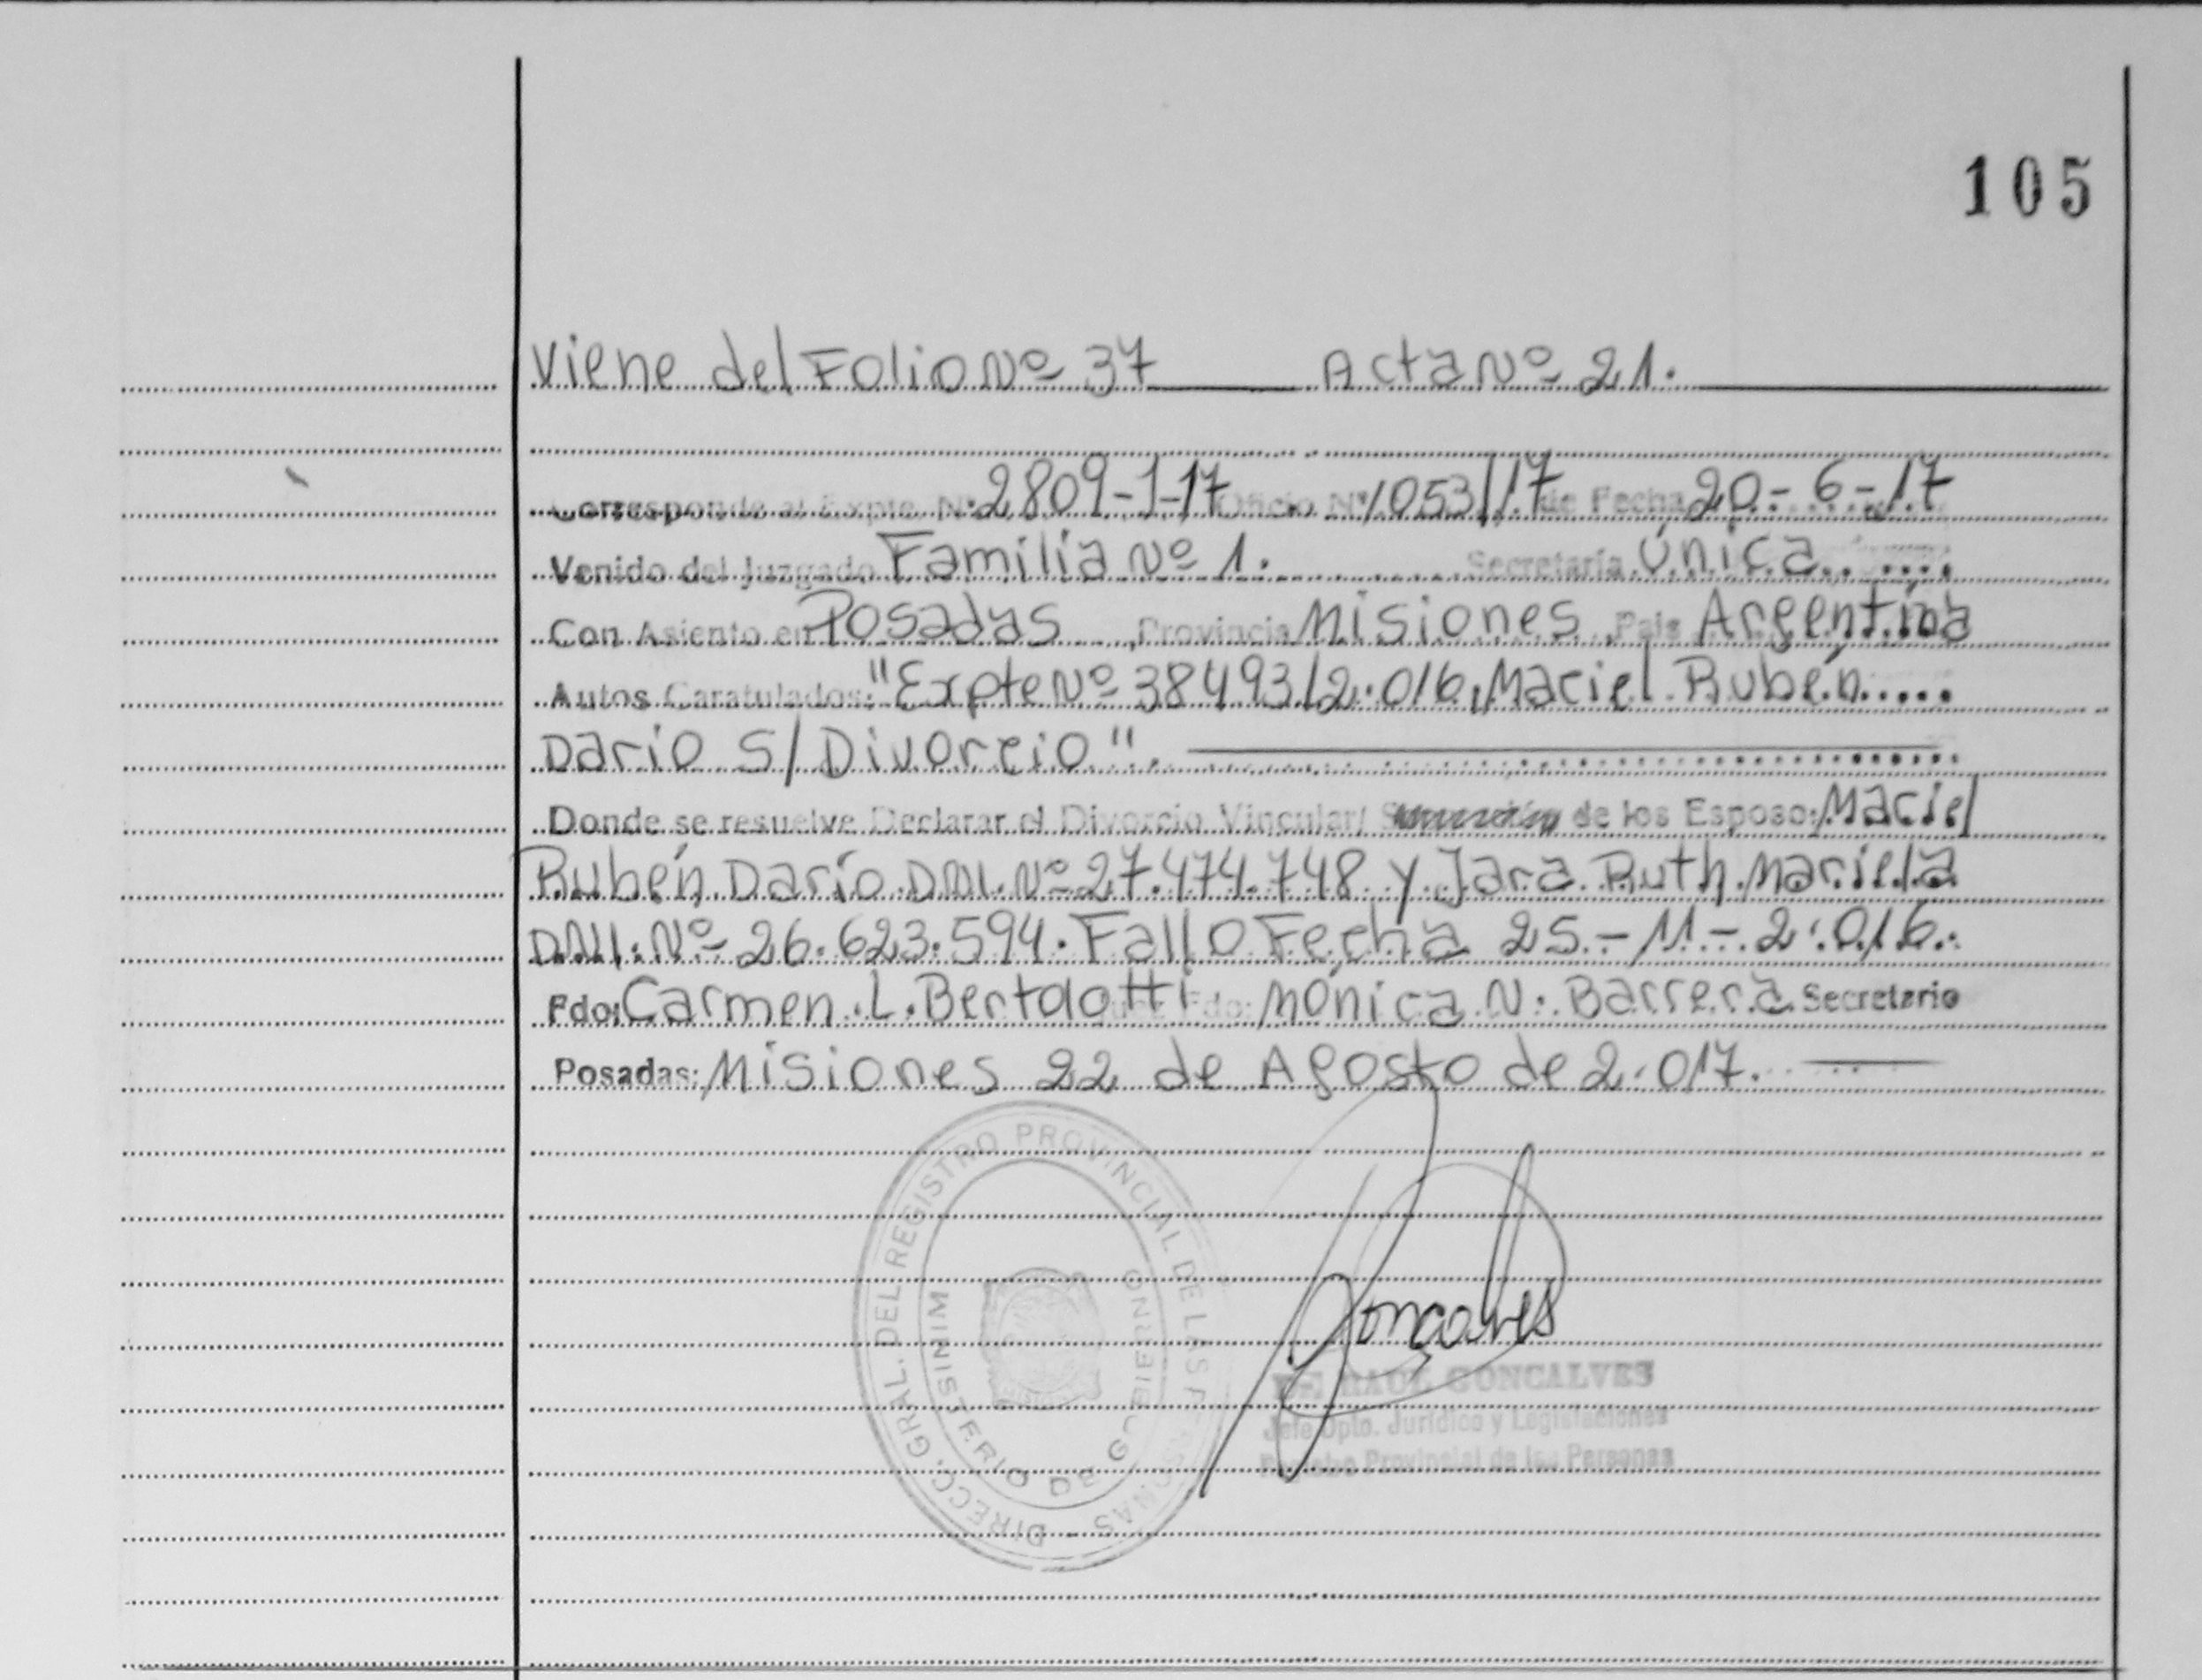 105
Viene del Folio Nº 37 Acta Nº 21.
Corresponde al Expte. Nº 2809-1-17 Oficio Nº 1053/17 de Fecha 20-6-17
Venido del Juzgado Familia Nº 1. Secretaría Única
Con Asiento en Posadas, Provincia Misiones, Pais Argentina
Autos Caratulados: "Expte Nº 38493/2.016, Maciel Rubén
Dario S/ Divorcio".
Donde se resuelve Declarar el Divorcio Vincular/ de los Esposo: Maciel
Rubén Darío DNI. Nº 27.474.748 y Jara Ruth Mariela
DNI. Nº 26.623.594. Fallo Fecha 25-11-2.016.
Fdo: Carmen L. Bertolotti Fdo: Mónica N. Barrera Secretario
Posadas; Misiones 22 de Agosto de 2.017.
DIRECC. GRAL. DEL REGISTRO PROVINCIAL DE LAS PERSONAS -
MINISTERIO DE GOBIERNO
Gonçalves
RAUL GONCALVES
Jefe Dpto. Jurídico y Legislaciones
Registro Provincial de las Personas